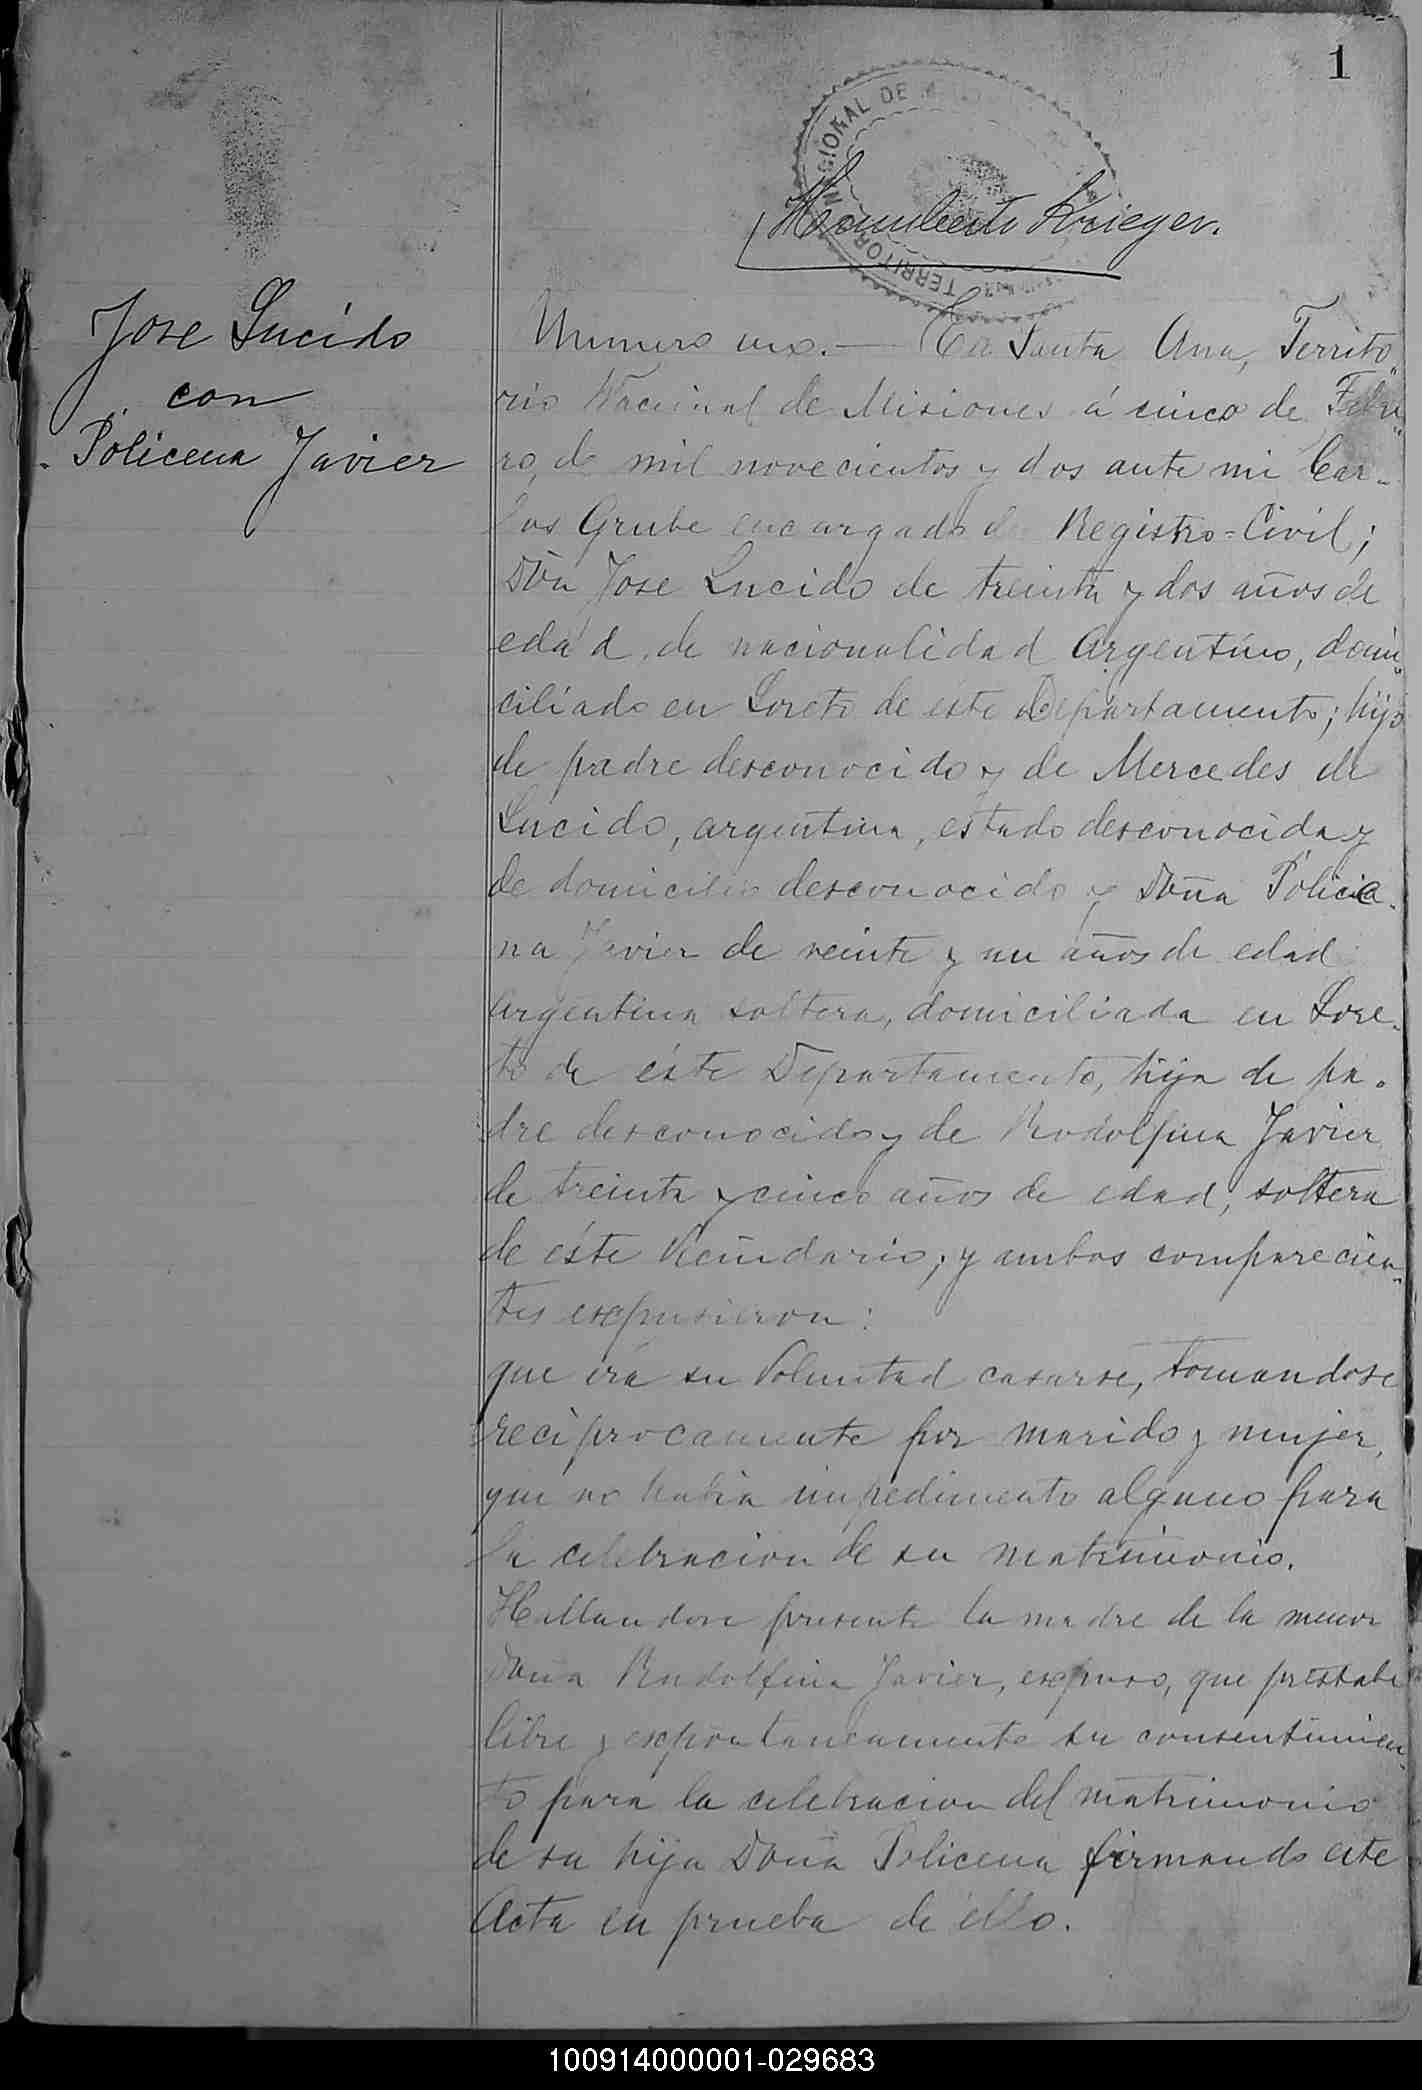 1
TERRITORIO NACIONAL DE
Humberto Krieger.
Jose Lucido
con
Policena Javier
Numero uno.— En Santa Ana, Territo„
rio Nacional de Misiones á cinco de Febre„
ro, de mil novecientos y dos ante mi Car„
los Grube encargado de Registro=Civil;
Don Jose Lucido de treinta y dos años de
edad, de nacionalidad Argentino, domi„
ciliado en Loreto de éste Departamento; hijo
de padre desconocido y de Mercedes de
Lucido, argentina, estado desconocida y
de domicilio desconocido y Doña Policia„
na Javier de veinte y un años de edad
Argentina soltera, domiciliada en Lore„
to de éste Departamento, hija de pa„
dre desconocido y de Rodolfina Javier
de treinta y cinco años de edad, soltera
de éste Vecindario; y ambos comparecien„
tes expusieron:
que era su Voluntad casarse, tomandose
reciprocamente por marido y mujer,
que no habia impedimento alguno para
la celebracion de su matrimonio.
Hallandose presente la madre de la menor
Doña Rudolfina Javier, expuso, que prestaba
libre y expontaneamente su consentimien„
to para la celebracion del matrimonio
de su hija Doña Policena firmando este
Acta en prueba de ello.
100914000001-029683